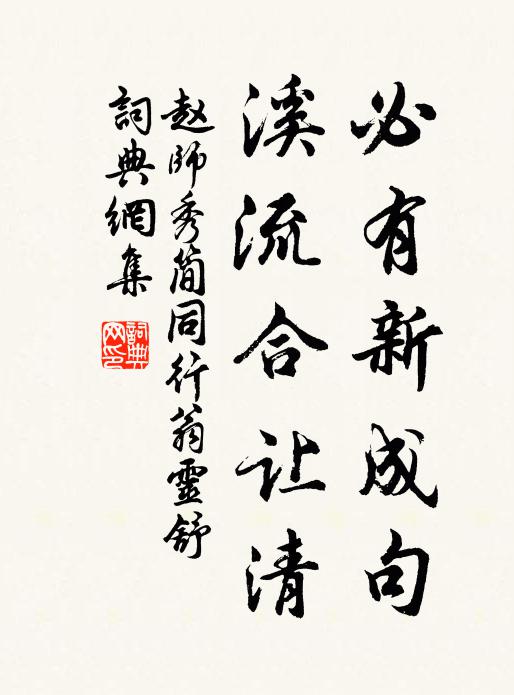 必有新成句
溪流合让清
赵師秀简同行翁靈舒
詞典網集
詞典网印